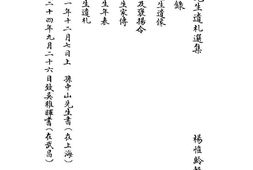 先生遺札選集 楊愷齡
錄
生遺像
及褒揚令
生家傳
生年表
生遺札
一年十二月七日上 孫中山先生書(在上海)
二十四年九月二十六日致吳稚暉書(在武昌)